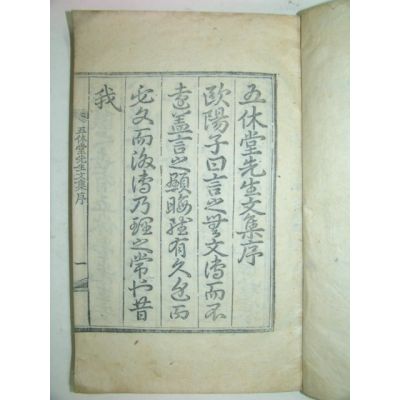 五休堂先生文集序
歐陽子曰言之無文傳而不
遠盖言之顯晦雖有久近而
必文而後傳乃理之常也昔
我
五休堂先生文集序
一